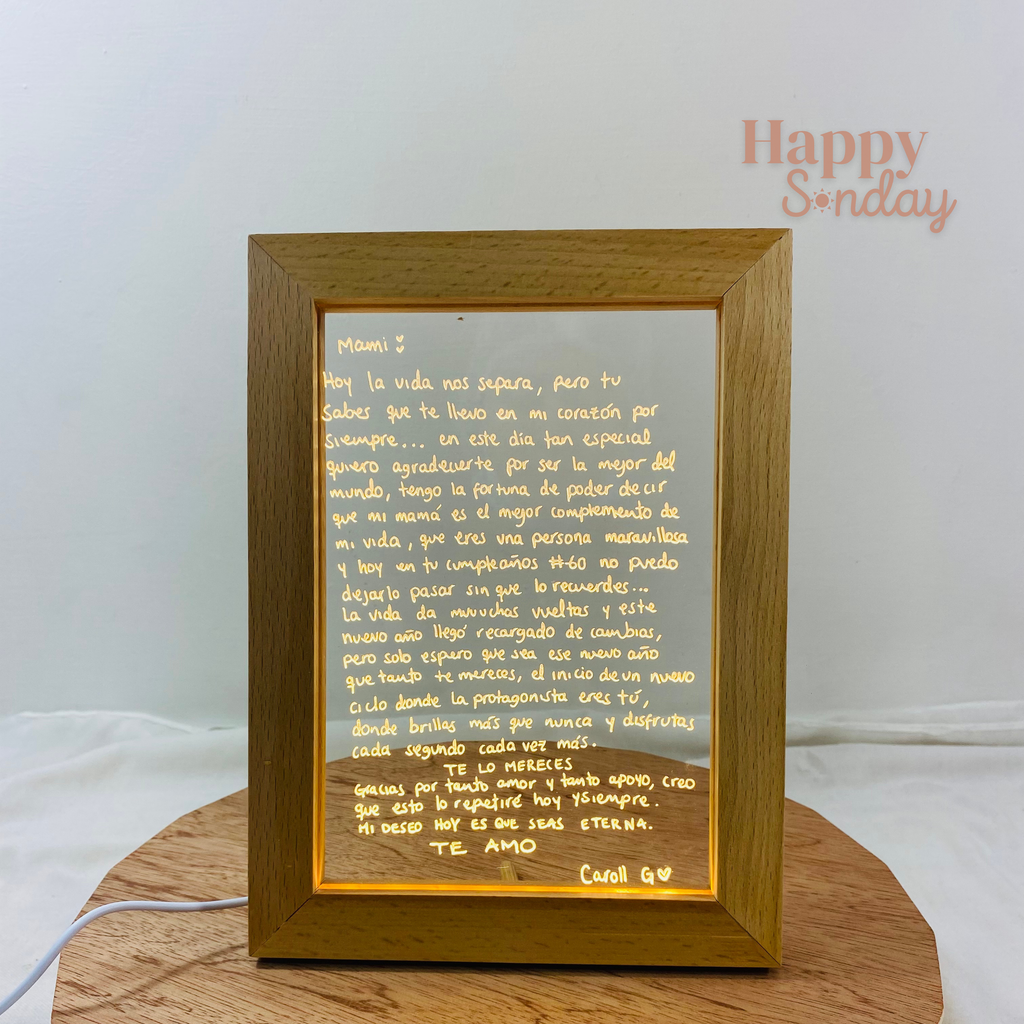 Happy
Sunday
Mami
Hoy la vida nos separa, pero tu
sabes que te llevo en mi corazón por
siempre... en este día tan especial
quiero agradecerte por ser la mejor del
mundo, tengo la fortuna de poder decir
que mi mamá es el mejor complemento de
mi vida, que eres una persona maravillosa
y hoy en tu cumpleaños #60 no puedo
dejarlo pasar sin que lo recuerdes...
La vida da muuuchas vueltas y este
nuevo año llegó recargado de cambias,
pero solo espero que sea ese nuevo año
que tanto te mereces, el inicio de un nuevo
ciclo donde la protagonista eres tú,
donde brillas más que nunca y disfrutas
cada segundo cada vez más.
TE LO MERECES
Gracias por tanto amor y tanto apoyo, creo
que esto lo repetiré hoy y siempre.
MI DESEO HOY ES QUE SEAS ETERNA.
TE AMO
Caroll G